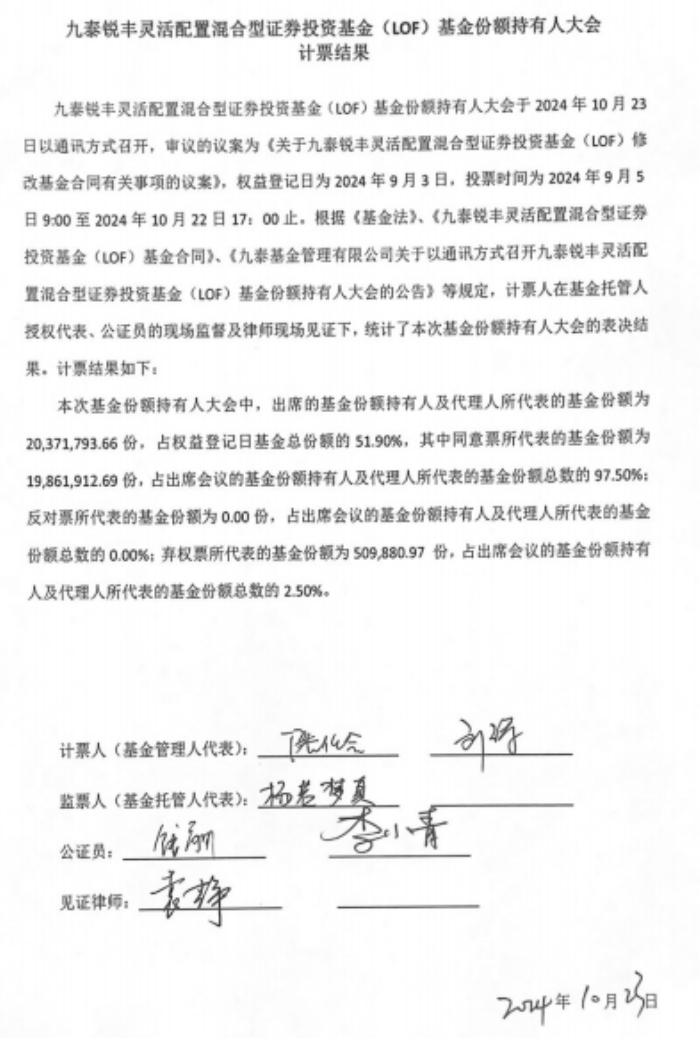 九泰锐丰灵活配置混合型证券投资基金（LOF）基金份额持有人大会
计票结果
九泰锐丰灵活配置混合型证券投资基金（LOF）基金份额持有人大会于 2024 年 10 月 23
日以通讯方式召开，审议的议案为《关于九泰锐丰灵活配置混合型证券投资基金（LOF）修
改基金合同有关事项的议案》，权益登记日为 2024 年 9 月 3 日，投票时间为 2024 年 9 月 5
日 9:00 至 2024 年 10 月 22 日 17：00 止。根据《基金法》、《九泰锐丰灵活配置混合型证券
投资基金（LOF）基金合同》、《九泰基金管理有限公司关于以通讯方式召开九泰锐丰灵活配
置混合型证券投资基金（LOF）基金份额持有人大会的公告》等规定，计票人在基金托管人
授权代表、公证员的现场监督及律师现场见证下，统计了本次基金份额持有人大会的表决结
果。计票结果如下：
本次基金份额持有人大会中，出席的基金份额持有人及代理人所代表的基金份额为
20,371,793.66 份，占权益登记日基金总份额的 51.90%，其中同意票所代表的基金份额为
19,861,912.69 份，占出席会议的基金份额持有人及代理人所代表的基金份额总数的 97.50%；
反对票所代表的基金份额为 0.00 份，占出席会议的基金份额持有人及代理人所代表的基金
份额总数的 0.00%；弃权票所代表的基金份额为 509,880.97 份，占出席会议的基金份额持有
人及代理人所代表的基金份额总数的 2.50%。
计票人（基金管理人代表）：
监票人（基金托管人代表）：杨若梦夏
公证员： 李小青
见证律师：袁静
2024 年 10 月 23 日